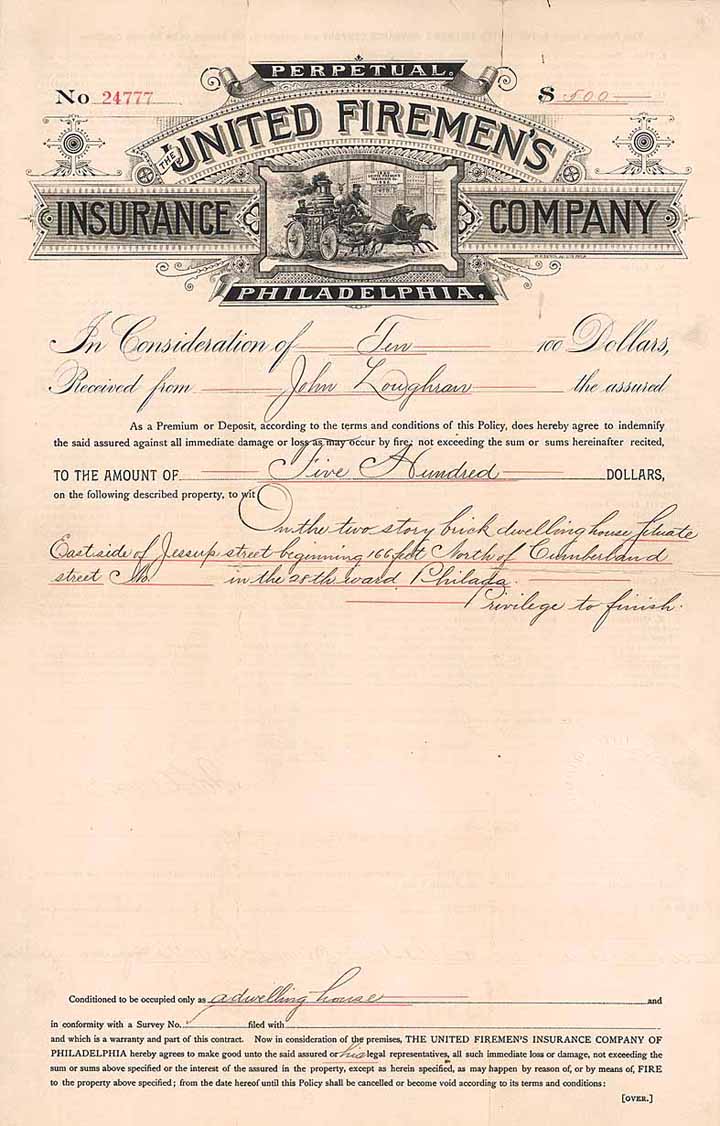 PERPETUAL.
No 24777
$ 500
THE UNITED FIREMEN'S
INSURANCE COMPANY
PHILADELPHIA,
In Consideration of Ten 100 Dollars,
Received from John Loughran the assured
As a Premium or Deposit, according to the terms and conditions of this Policy, does hereby agree to indemnify
the said assured against all immediate damage or loss as may occur by fire, not exceeding the sum or sums hereinafter recited,
TO THE AMOUNT OF Five Hundred DOLLARS,
on the following described property, to wit
On the two story brick dwelling house situate
East side of Jessup street beginning 166 feet North of Cumberland
street No. in the 28th ward Philada.
Privilege to finish.
Conditioned to be occupied only as a dwelling house and
in conformity with a Survey No. filed with
and which is a warranty and part of this contract. Now in consideration of the premises, THE UNITED FIREMEN'S INSURANCE COMPANY OF
PHILADELPHIA hereby agrees to make good unto the said assured or his legal representatives, all such immediate loss or damage, not exceeding the
sum or sums above specified or the interest of the assured in the property, except as herein specified, as may happen by reason of, or by means of, FIRE
to the property above specified; from the date hereof until this Policy shall be cancelled or become void according to its terms and conditions:
[OVER.]